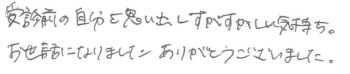 受診前の自分を思い出しすがすがしい気持ち。
お世話になりました ありがとうございました。